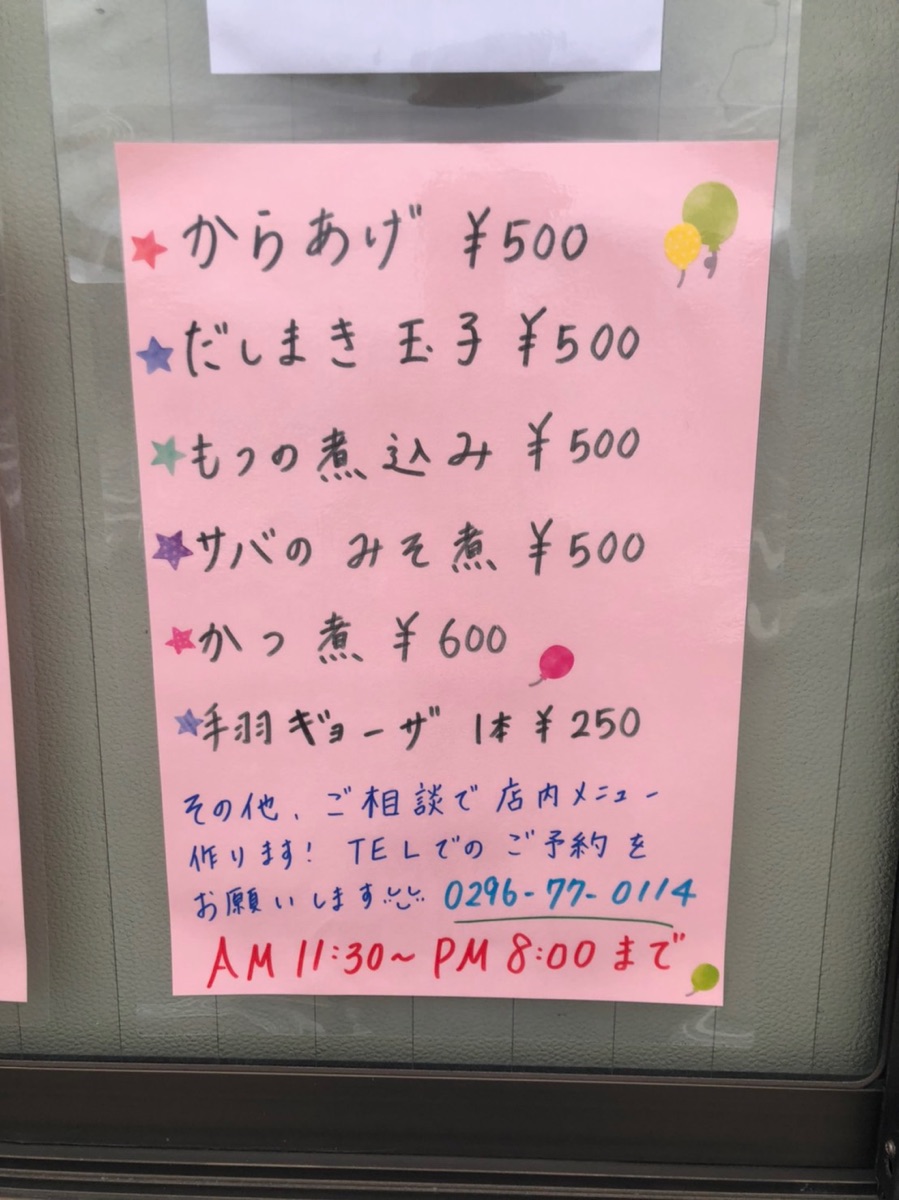 からあげ ¥500
だしまき玉子 ¥500
もつの煮込み ¥500
サバのみそ煮 ¥500
かつ煮 ¥600
手羽ギョーザ 1本 ¥250
その他、ご相談で店内メニュー
作ります! TELでのご予約を
お願いします 0296-77-0114
AM 11:30~PM 8:00まで